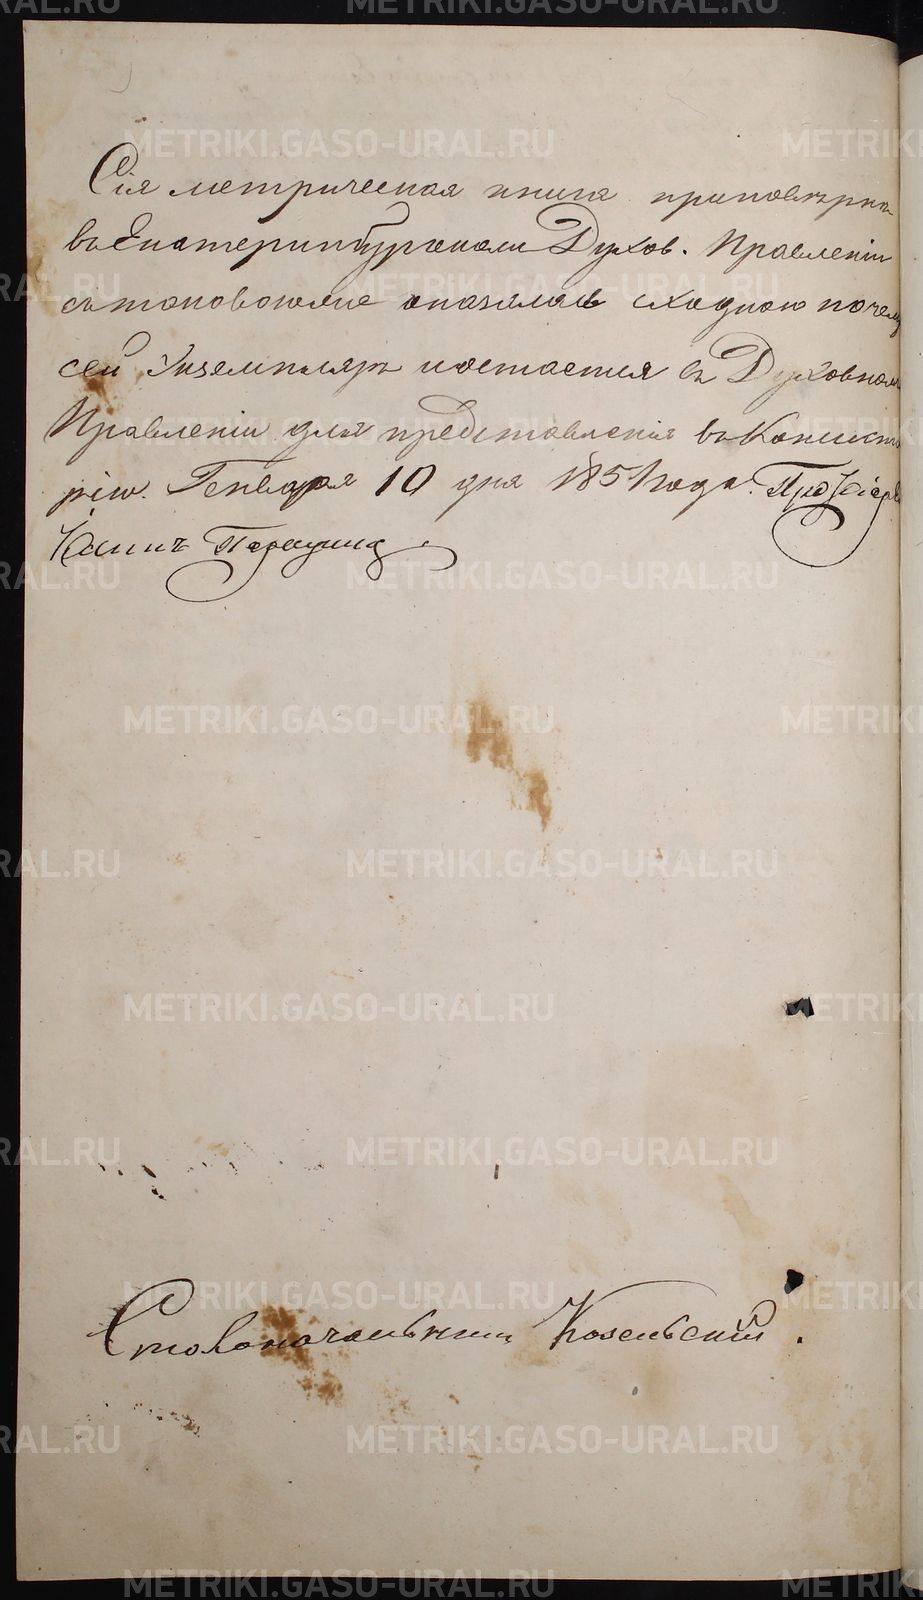 Сія метрическая книга приповѣрке
въ Екатеринбургскомъ Духов. Правленіи
сътаковоюже оказалась сходною почему
сей Экземпляръ иостается въ Духовномъ
Правленіи для представленія въ Консисто
рію. Генваря 10 дня 1851 года. Протоіерей
Іоаннъ
Столоначальникъ Козельскій.